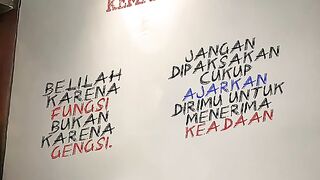 BELILAH
KARENA
FUNGSI
BUKAN
KARENA
GENGSI.
JANGAN
DIPAKSAKAN
CUKUP
AJARKAN
DIRIMU UNTUK
MENERIMA
KEADAAN